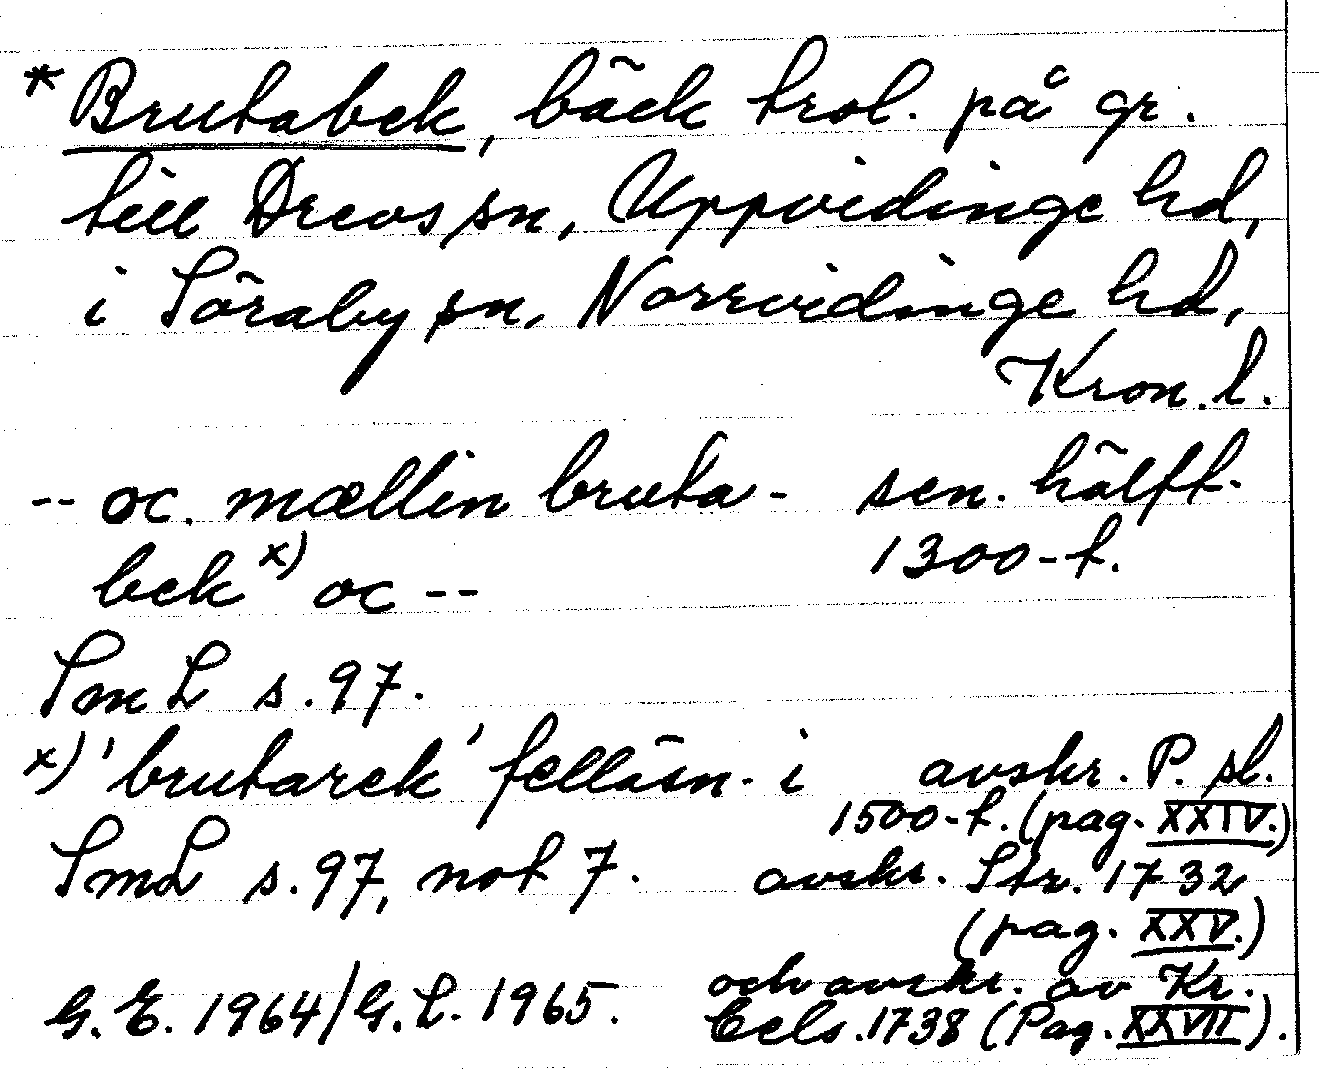 * Brutabek, bäck trol. på gr.
till Drevs sn, Uppvidinge hd,
i Söraby sn, Norrvidinge hd,
Kron. l.
-- oc. mællin bruta- sen. hälft.
bek x) oc -- 1300-t.
SmL s. 97.
x) 'brutarek' felläsn. i avskr. P. sl.
1500-t. (pag. XXIV.)
SmL s. 97, not 7. avskr. Str. 1732
(pag. XXV.)
och avskr. av Kr.
G. E. 1964/G. L. 1965. Cels. 1738 (Pag. XXVII).